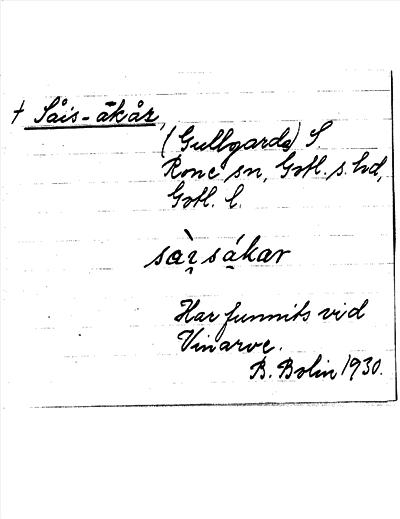 † Såis-åkår,
(Gullgarda) S
Rone sn, Gotl. s. hd,
Gotl. l.
sàɪsákar
Har funnits vid
Vinarve.
B. Bolin 1930.